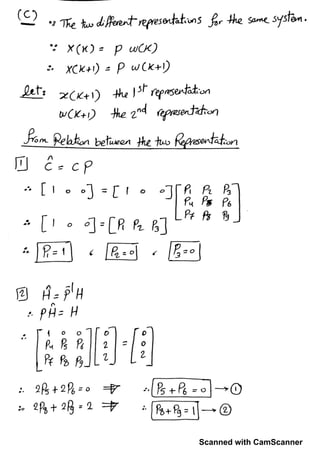 (C)
∵ The two different representations for the same system.
∵ x(k) = P w(k)
∴ x(k+1) = P w(k+1)
Let: x(k+1) the 1st representation
w(k+1) the 2nd representation
from Relation between the two Representation
[1] Ĉ = C P
∴ [1 0 0] = [1 0 0] [P1 P2 P3
P4 P5 P6
P7 P8 P9]
∴ [1 0 0] = [P1 P2 P3]
∴ P1 = 1 , P2 = 0 , P3 = 0
[2] Ĥ = P⁻¹ H
∴ P Ĥ = H
∴ [1 0 0
P4 P5 P6
P7 P8 P9] [0
2
2] = [0
0
2]
∴ 2P5 + 2P6 = 0 ⇒ ∴ P5 + P6 = 0 → ①
∴ 2P8 + 2P9 = 2 ⇒ ∴ P8 + P9 = 1 → ②
Scanned with CamScanner